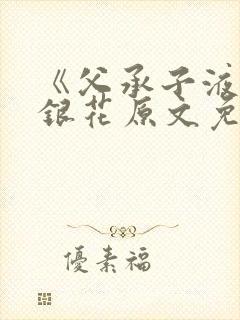 《父承子液
銀花原文免
優素福